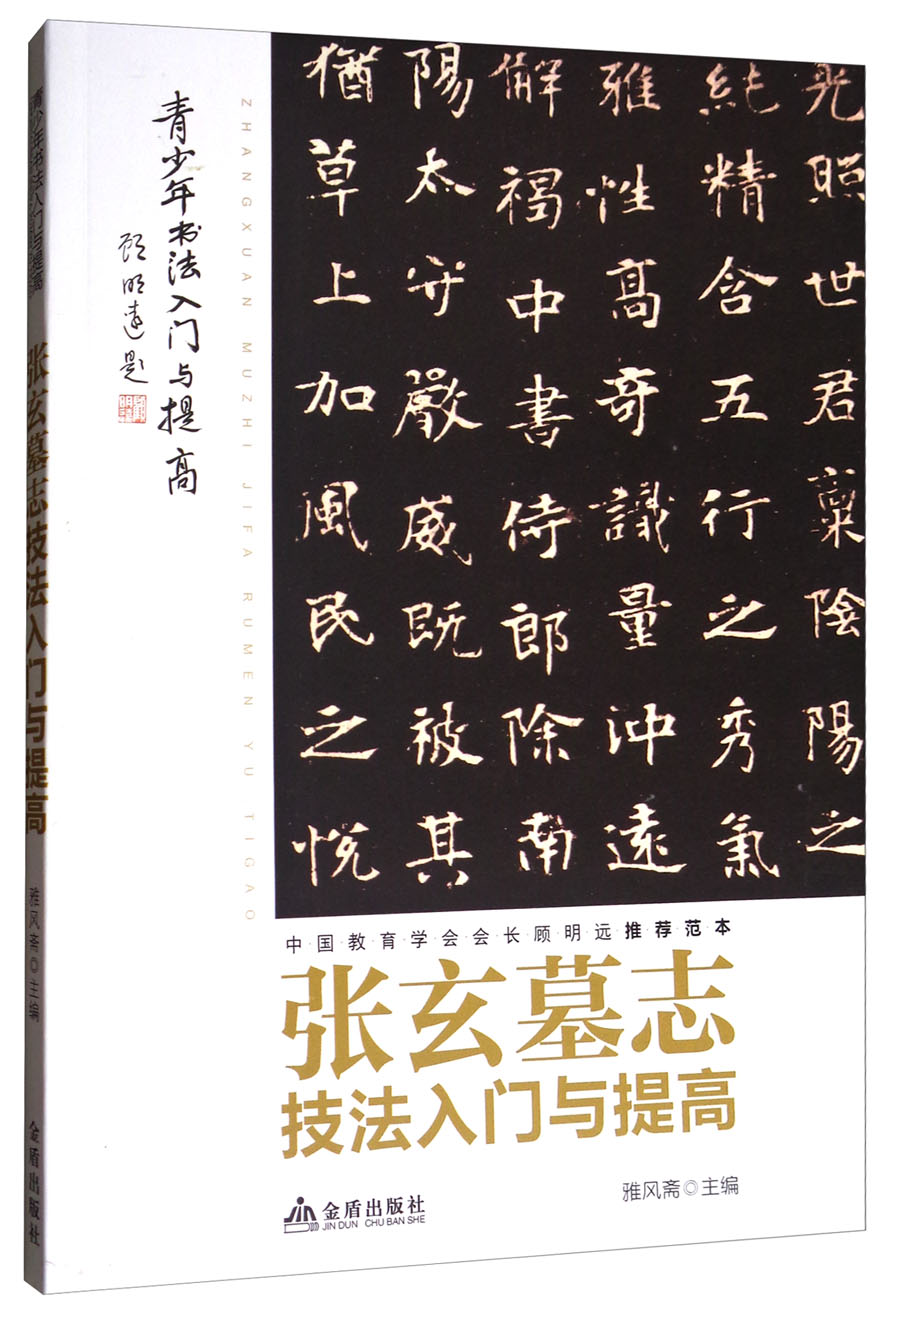 青少年书法入门与提高
张玄墓志技法入门与提高
雅风斋◎主编
金盾出版社
青少年书法入门与提高
顾明远题
ZHANGXUAN MUZHI JIFA RUMEN YU TIGAO
光照世君稟陰陽之
純精含五行之秀氣
雅性高奇識量沖遠
解褐中書侍郎除南
陽太守嚴威既被其
猶草上加風民之悅
中·国·教·育·学·会·会·长·顾·明·远·推·荐·范·本
张玄墓志
技法入门与提高
雅风斋◎主编
金盾出版社
JIN DUN CHU BAN SHE